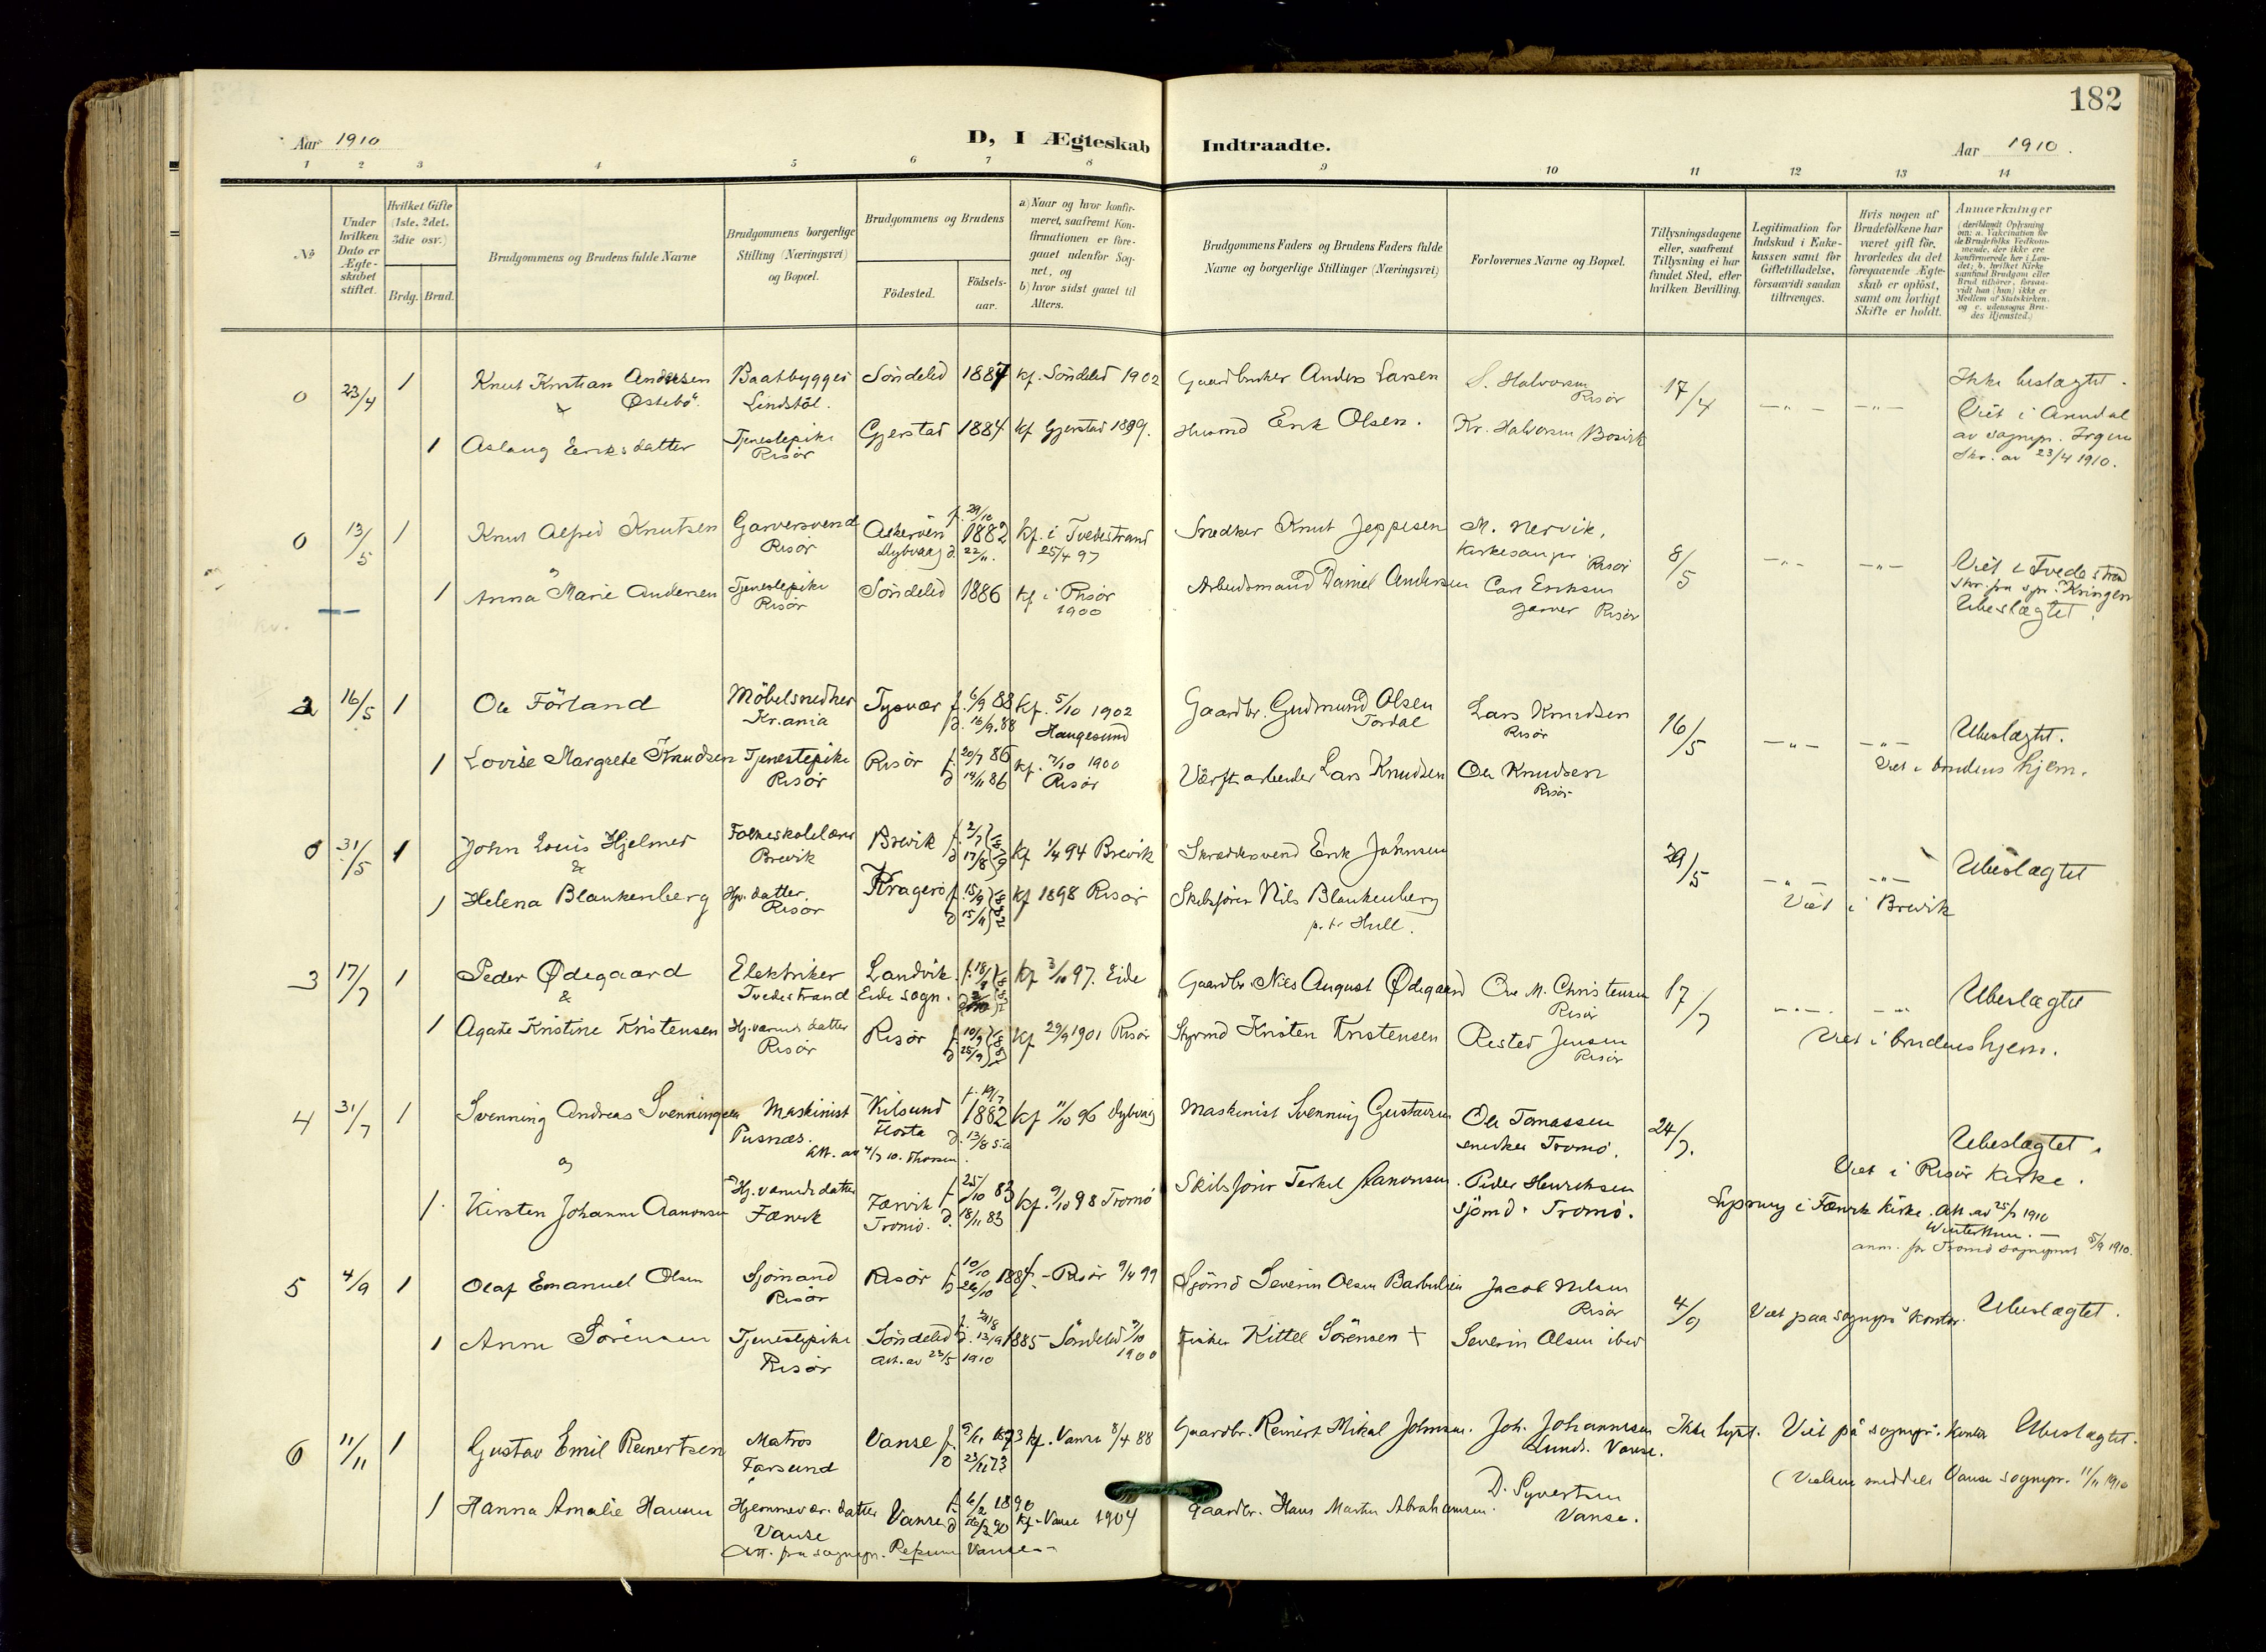 182
Aar 1910
D, I Ægteskab Indtraadte.
Aar 1910.
1 2 3 4 5 6 7 8 9 10 11 12 13 14
No
Under hvilken Dato er Ægteskabet stiftet.
Hvilket Gifte (1ste, 2det, 3die osv.)
Brdg. Brud.
Brudgommens og Brudens fulde Navne
Brudgommens borgerlige Stilling (Næringsvei) og Bopæl.
Brudgommens og Brudens
Fødested.
Fødselsaar.
a) Naar og hvor konfirmeret, saafremt Konfirmationen er foregaaet udenfor Sognet, og
b) hvor sidst gaaet til Alters.
Brudgommens Faders og Brudens Faders fulde Navne og borgerlige Stillinger (Næringsvei)
Forlovernes Navne og Bopæl.
Tillysningsdagene eller, saafremt Tillysning ei har fundet Sted, efter hvilken Bevilling.
Legitimation for Indskud i Enkekassen samt for Giftetilladelse, forsaavidt saadan tiltrænges.
Hvis nogen af Brudefolkene har været gift før, hvorledes da det foregaaende Ægteskab er opløst, samt om lovligt Skifte er holdt.
Anmærkninger (deriblandt Oplysning om: a. Vakcination for de Brudefolks Vedkommende, der ikke ere konfirmerede her i Landet; b. hvilket Kirkesamfund Brudgom eller Brud tilhører, forsaavidt han (hun) ikke er Medlem af Statskirken, og c. udensogns Brudes Hjemsted.)
0 23/4 1 Knut Kristian Andersen Østebö. Baatbygger Lindstöl. Söndeled 1887 kf. Söndeled 1902 Gaardbruker Anders Larsen S. Halvorsen Risör 17/4 — " — — " — Ikke beslægtet.
&
Viet i Arendal av sognepr.
1 Aslaug Eriksdatter Tjenestepike Risör Gjerstad 1884 kf Gjerstad 1899. Husmd Erik Olsen. Kr. Halvorsen Bosvik
Skr. av 23/4 1910.
0 13/5 1 Knut Alfred Knutsen Garversvend Risör Askeröen Dybvaag f. 29/10 1882 d. 22/11. kf. i Tvedestrand 25/4 97 Snedker Knut Jeppesen M. Nervik, Kirkesanger Risör 8/5 — " — — " — Viet i Tvedestrand
og
skr. fra spr. Kringen
1 Anna Marie Andersen Tjenestepike Risör Söndeled 1886 kf i Risör 1900 Arbeidsmand Daniel Andersen Carl Eriksen garver Risör Ubeslægtet.
2 16/5 1 Ole Förland Möbelsnedker Kr.ania Tysvær f. 6/9 88 d. 16/9. 88 kf. 5/10 1902 Haugesund Gaardbr. Gudmund Olsen Lars Knudsen Risör 16/5 — " — — " — Ubeslægtet.
Viet i brudens hjem.
1 Lovise Margrete Knudsen Tjenestepike Risör Risör f. 20/7 86 d 14/11 86 kf. 7/10 1900 Risör Værftarbeider Lars Knudsen Ole Knudsen Risör
0 31/5 1 John Louis Hjelmer Folkeskolelærer Brevik Brevik f. 2/7 d 17/8 79 kf 1/4 94 Brevik Skræddersvend Erik Johnsen 29/5 — " — — " — Ubeslægtet
&
Viet i Brevik
1 Helena Blankenberg Hjv. datter. Risör Kragerö f. 15/9 d 15/11 82 kf 1898 Risör Skibsförer Nils Blankenberg p.t. Hull.
3 17/7 1 Peder Ødegaard Elektriker Tvedestrand Landvik Eide sogn. kf 3/10 97. Eide Gaardbr. Nils August Ødegaard Ove M. Christensen Risör 17/7 — " — — " — Ubeslægtet
&
Viet i brudens hjem.
1 Agate Kristine Kristensen Hj.værende datter Risör Risör f. 10/9 d 25/9 kf 29/9 1901 Risör Styrmd Kristen Kristensen Risted Jensen Risör
4 31/7 1 Svenning Andreas Svenningsen Maskinist Pusnæs. Kilsund Flosta f. 19/7 1882 d. 13/8 s.a kf 11/10 96 Dybvaag Maskinist Svenning Gustavsen Ole Tomassen snedker Tromö. 24/7. Ubeslægtet.
Att. av 4/7 10. Thorsen.
Viet i Risör Kirke.
og
1. Kirsten Johanne Aanonsen Hj.værende datter Færvik Færvik Tromö. f. 25/10 83 d. 18/11 83 kf. 9/10 98 Tromö Skibsförer Terkel Aanonsen. Peder Henriksen sjömd. Tromö.
Lysning i Færvik Kirke. Att. av 25/7 1910 Winterthun. —
anm. for Tromö sogneprest 5/9 1910.
5 4/9 1 Olaf Emanuel Olsen Sjömand Risör Risör f 10/10 d 26/10 1884 - Risör 9/4 99 Sjömd Severin Olsen Jacob Nilsen Risör 4/9 Viet paa sognepr's kontor. Ubeslægtet.
1 Anne Sörensen Tjenestepike Risör Söndeled Att. av 23/5 1910 f. 24/8 d. 13/9 1885 - Söndeled 1900 Fisker Kittel Sörensen + Severin Olsen ibid
6 11/11 1 Gustav Emil Reinertsen Matros Farsund Vanse f. 9/11 1873 d 23/11 73 kf. Vanse 8/4 88 Gaardbr. Reinert Mikal Johnsen. Joh. Johannesen Lund. Vanse. Ikke lyst. Viet på sognepr. kontor Ubeslægtet.
(Vielsen meddelt Vanse sognepr. 11/11 1910
1 Hanna Amalie Hansen Hjemmevær. datter Vanse Vanse f. 6/2 1890 d 16/3 90 kf. Vanse 1904 Gaardbr. Hans Martin Abrahamsen. D. Syvertsen Vanse.
Att. fra sognepr. Vanse —